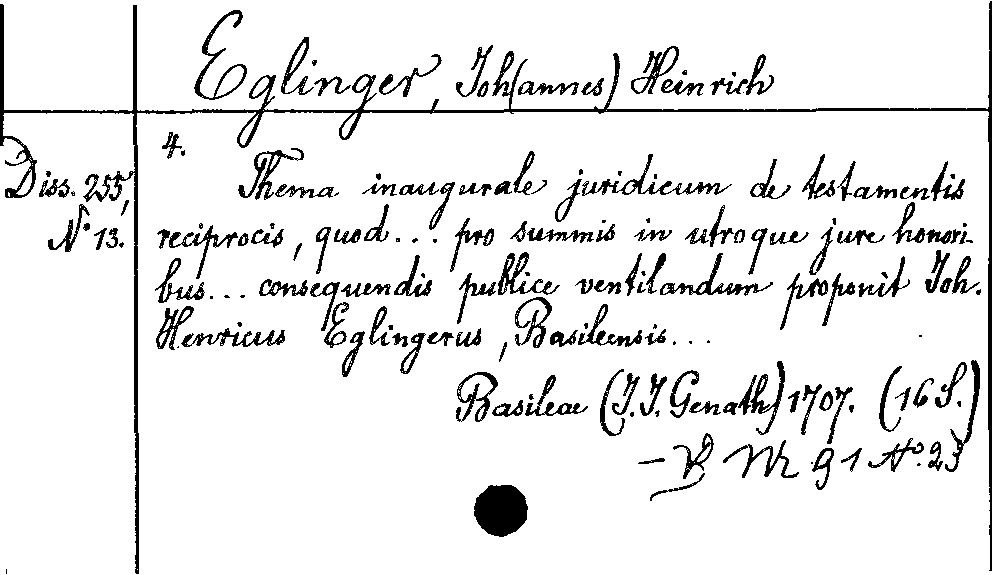 Eglinger, Joh(annes) Heinrich
4.
Diss. 255,
No 13.
Thema inaugurale juridicum de testamentis
reciprocis, quod... pro summis in utroque jure honori-
bus... consequendis publice ventilandum proponit Joh.
Henricus Eglingerus, Basileensis...
Basileae (J.J. Genath) 1707. (16 S.)
— Nr 91 No. 23